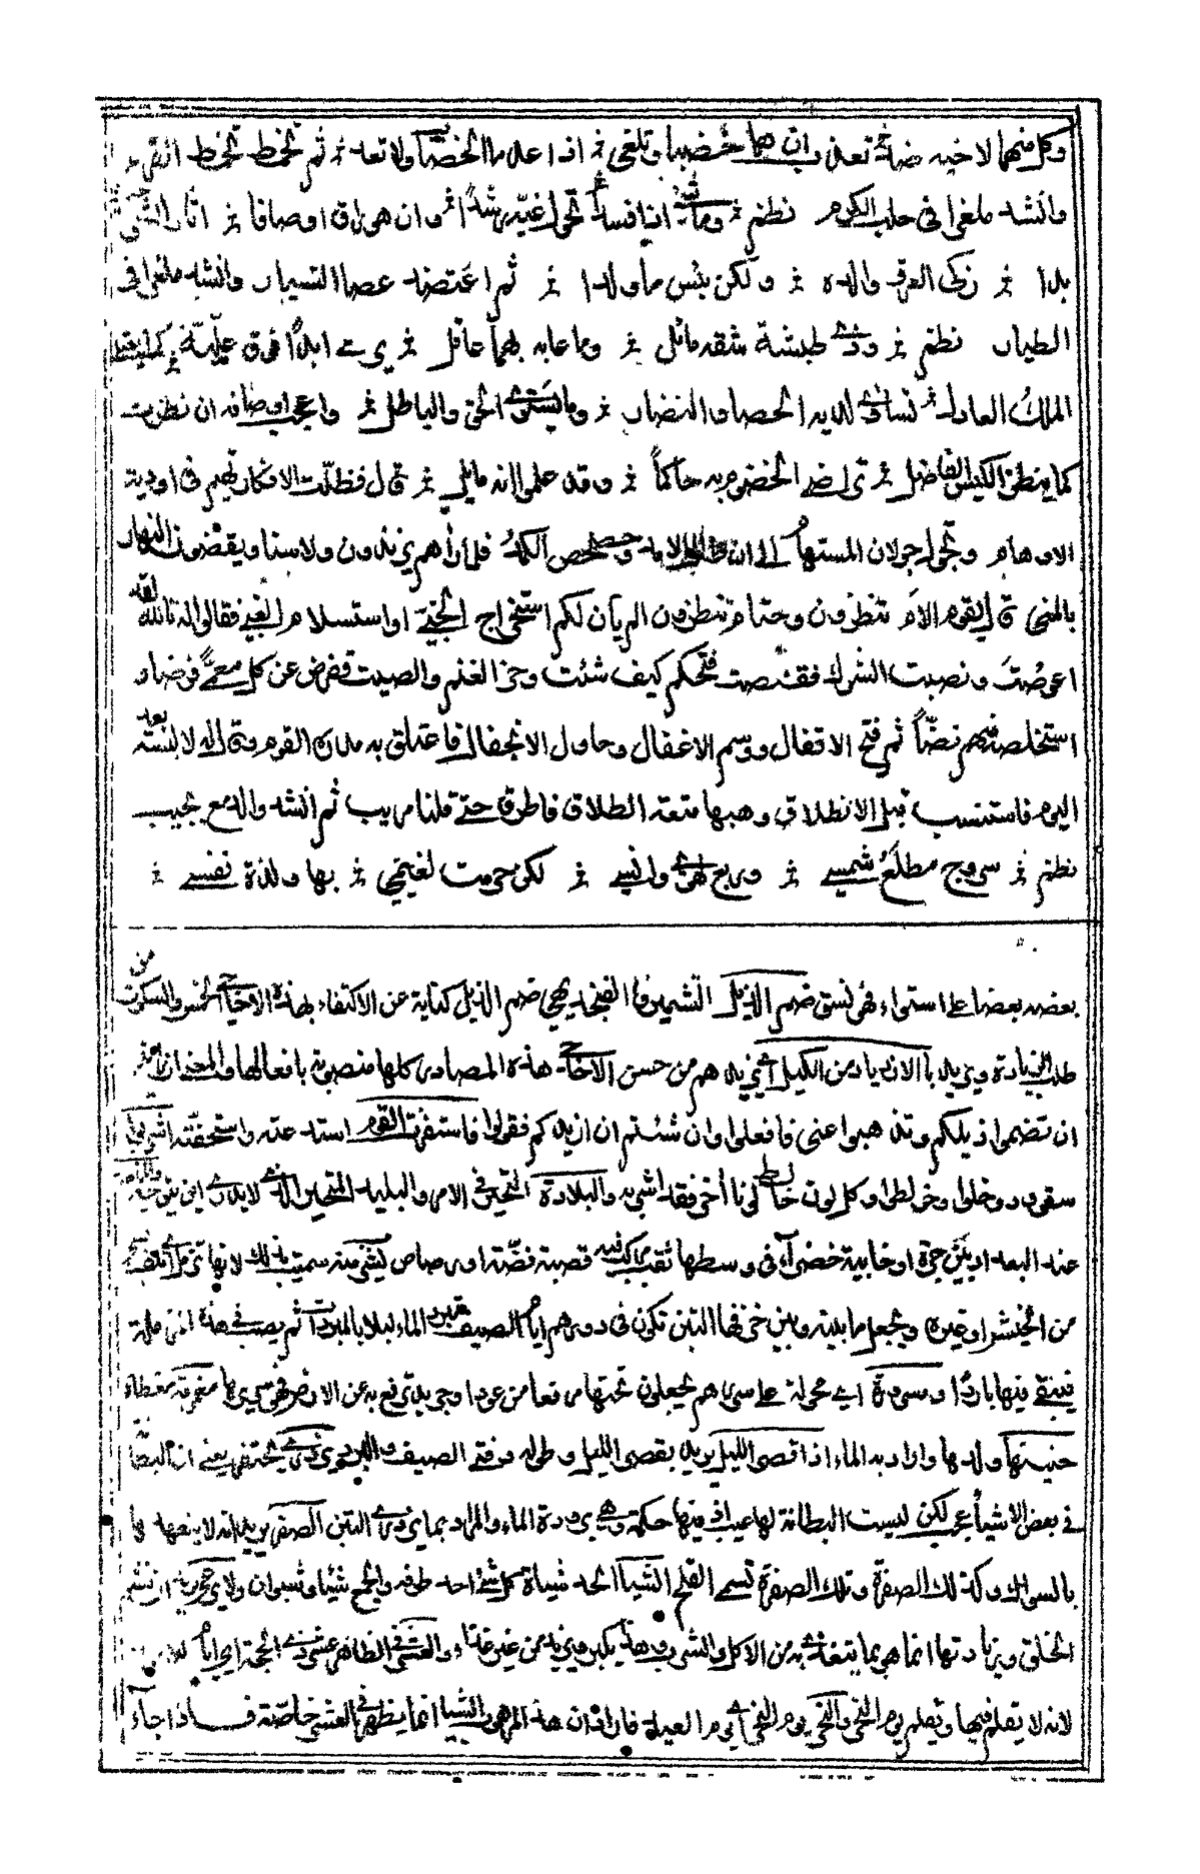 وكل منهما لاخيه ضد تعدى وان هما خضبا وتلغى ؞ اذا عدما الخضاب ولا تعد ؞ ثم تخمط تخمط القرم
وانشد ملغزا فى حلب الكرم نظم ؞ وما شئ اذا فسدا تحول غيه رشدا ؞ وان هو راق اوصافا ؞ اثار الشر
بدا ؞ زكى العرق والده ؞ ولكن بئس ما ولدا ؞ ثم اعتضد عصا التسيار وانشد ملغزا فى
الطيار نظم ؞ وذى طيشة شقه مائل ؞ وما عابه بهما عاقل ؞ يرى ابدا فوق علية ؞ كما يعتلى
الملك العادل ؞ تساوى لديه الحصا والنضار ؞ وما يستوى الحق والباطل ؞ واعجب اوصافه ان نظرت
كما ينظر الكيس الفاضل ؞ تراضى الخصوم به حاكما ؞ وقد علموا انه مائل ؞ قال فظلت الافكار تهيم فى اودية
الاوهام وتجول جولان المستهام الى ان طال الامد وحصحص الكمد فلما راهم يزندون ولا سنا ويقضون النهار
بالمنى قال يا قوم الام تنظرون وحتام تنظرون الم يان لكم استخراج الخبئ او استسلام الغبى فقالوا له تالله لقد
اعوصت ونصبت الشرك فقنصت فتحكم كيف شئت وحز الغنم والصيت ففرض عن كل معمى فرضا و
استخلصه منهم نضا ثم فتح الاقفال ووسم الاغفال وحاول الانجفال فاعتلق به مدره القوم وقال له لا لبسة بعد
اليوم فاستنسب قبل الانطلاق وهبها متعة الطلاق فاطرق حتى قلنا مريب ثم انشد والدمع يجيب
نظم ؞ سروج مطلع شمسى ؞ وربع لهوى وانسى ؞ لكن حرمت نعيمى ؞ بها ولذة نفسى ؞
بعضه بعضا على استواء فهى نسق ضم الذيل التشمير فا الفنجد يهى ضم الذيل كناية عن الاكتفاء بهذه الاحاجى الخمس والسكوت من
طلب الزيادة ويريد با الازدياد من الكيل اى يزيدهم من حسن الاحاجى هذه المصادر كلها منصوبة بافعالها والمعنى ان
ان تضموا ذيلكم وتذهبوا عنى فافعلوا وان شئتم ان ازيدكم فقولوا فاستفزت القوم استدعته واستخفته اشربوا
سقوه ودخلوا وخلطوا وكل لون خالط لونا اخر فقد اشربه والبلادة التحير فى الامر والبليد المتحير الذى لا يدرى اين يتوجه
عند البعد او بين جرة او خابية خضراء فى وسطها ثقب مركب فيه قصبة فضة او رصاص يشرب منه سميت بذلك لانها تزمل اى تلف
من الخيش او غيره ويجعل ما بينه وبين خزفها التبن تكون فى دورهم ايام الصيف يبرد الماء ليلا بالبرادات ثم يصب فى هذه المزملة
فيبقى فيها باردا ومسررة اى محمولة على سرير هم يجعلون تحتها مرتفعا من عود او جريد ترتفع به عن الارض فهى سريرها مغمومة مغطاة
جنينها ولدها واراد به الماء اذا قصر الليل يريد بقصر الليل وطوله وقتى الصيف والبرد يزرى يحتقر يعنى ان البطانة
فى بعض الاشياء عيب لكن ليست البطانة لها عيب اذ فيها حكمة وهى برودة الماء والمراد بما يزرى التبن الصفر يريد انه لا ينعمها
بالسواك وكذلك الصفرة وتلك الصفرة تسمى القلح الشبا الحد شباة كل شئ احد طرفه والجمع شبا وشبوان
الخلق وزيادتها انما هى بما يتغذى به من الاكل والشرب وهذا يكبر ويزيد من غير غذاء والعشر فى الظاهر عشر ذى الحجة اى ايام
لانه لا يقلم فيها ويقلم يوم النحر والنحر يوم النحر اى يوم العيد فاراد ان هذا المرهوب الشبا انما يظهر فى العشر خاصة فاذا جاء